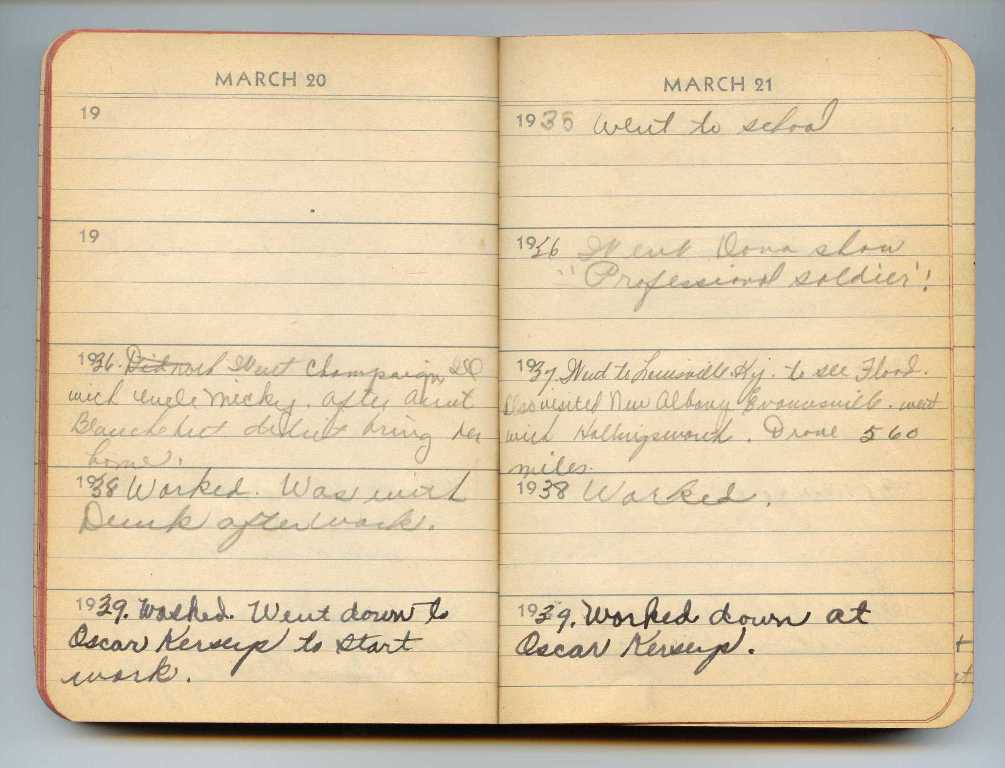 MARCH 20
19
19
1936. Did not Went Champaign Ill
with uncle Micky. after aunt
Blanche but didn't bring her
home.
1938 Worked. Was with
Dunk after work.
1939. Washed. Went down to
Oscar Kerseys to start
work.
MARCH 21
1935 Went to school
1936 Went Dona show
"Professional soldier"!
1937 Went to Louisville Ky. to see Flood.
Also visited New Albany Evannsville. went
with Hollingsworth. Drove 560
miles.
1938 Worked.
1939. Worked down at
Oscar Kerseys.